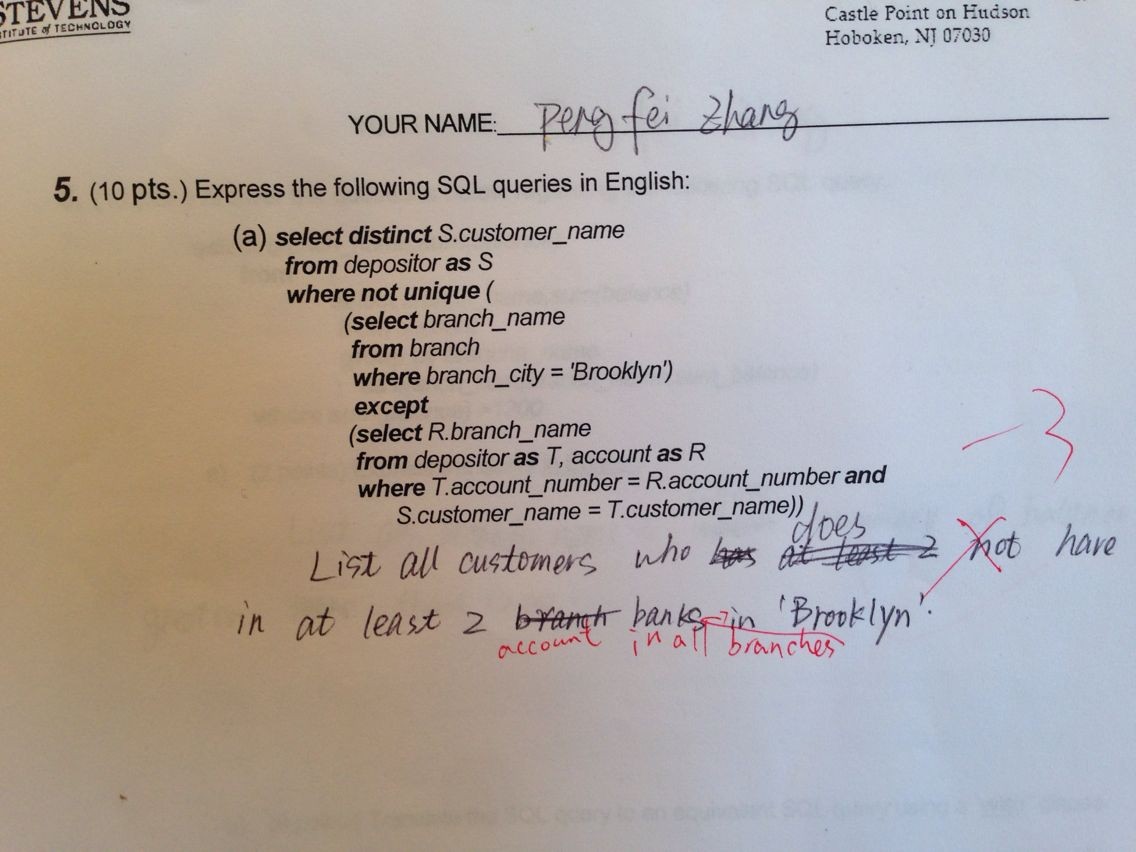 STEVENS
INSTITUTE of TECHNOLOGY
Castle Point on Hudson
Hoboken, NJ 07030
YOUR NAME: Peng fei Zhang
5. (10 pts.) Express the following SQL queries in English:
(a) select distinct S.customer_name
from depositor as S
where not unique (
(select branch_name
from branch
where branch_city = 'Brooklyn')
except
(select R.branch_name
from depositor as T, account as R
where T.account_number = R.account_number and
S.customer_name = T.customer_name))
-3
does
List all customers who has at least 2 not have
in at least 2 branch banks in 'Brooklyn'.
account in all branches